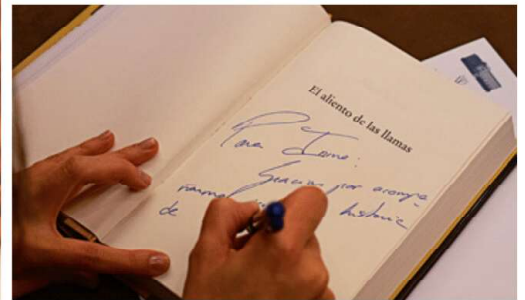 El aliento de las llamas
Para Irene:
Gracias por acompa
historia
de